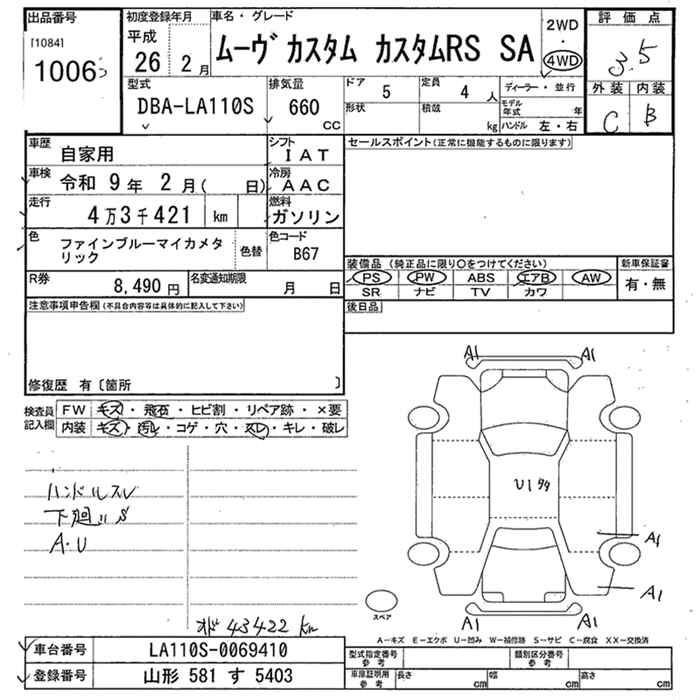 出品番号
[1084]
1006
初度登録年月
平成
26年 2月
車名・グレード
ムーヴ カスタム カスタムRS SA
2WD
・
4WD
評価点
3.5
外装 内装
C B
型式
DBA-LA110S
排気量
660
CC
ドア 5
形状
定員 4 人
積載
kg
ディーラー・並行
モデル年式 年
ハンドル 左・右
車歴 自家用
シフト IAT
車検 令和 9年 2月( 日)
冷房 AAC
走行 4万3千421 km
燃料 ガソリン
色 ファインブルーマイカメタリック
色替
色コード B67
R券 8,490円
名変通知期限 月 日
セールスポイント(正常に機能するものに限ります)
装備品(純正品に限り○をつけてください)
PS PW ABS エアB AW
SR ナビ TV カワ
新車保証書
有・無
後日品
注意事項申告欄(不具合内容等は具体的に記入して下さい)
修復歴 有〔箇所 〕
検査員記入欄
FW キズ・飛石・ヒビ割・リペア跡・×要
内装 キズ・汚レ・コゲ・穴・スレ・キレ・破レ
ハンドルスレ
下廻りS
A・U
43422 km
A1 A1
U1
A1
A1
A1 A1
スペア
A-キズ E-エクボ U-凹み W-補修跡 S-サビ C-腐食 XX-交換済
車台番号 LA110S-0069410
登録番号 山形 581 す 5403
型式指定番号
参考
類別区分番号
参考
車庫証明用
参考
長さ cm
幅 cm
高さ cm